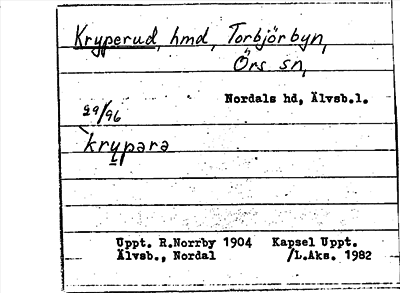 Kryperud, hmd, Torbjörbyn,
Örs sn,
Nordals hd, Älvsb.l.
29/96
`krypərə
Uppt. R.Norrby 1904 Kapsel Uppt.
Älvsb., Nordal /L.Aks. 1982